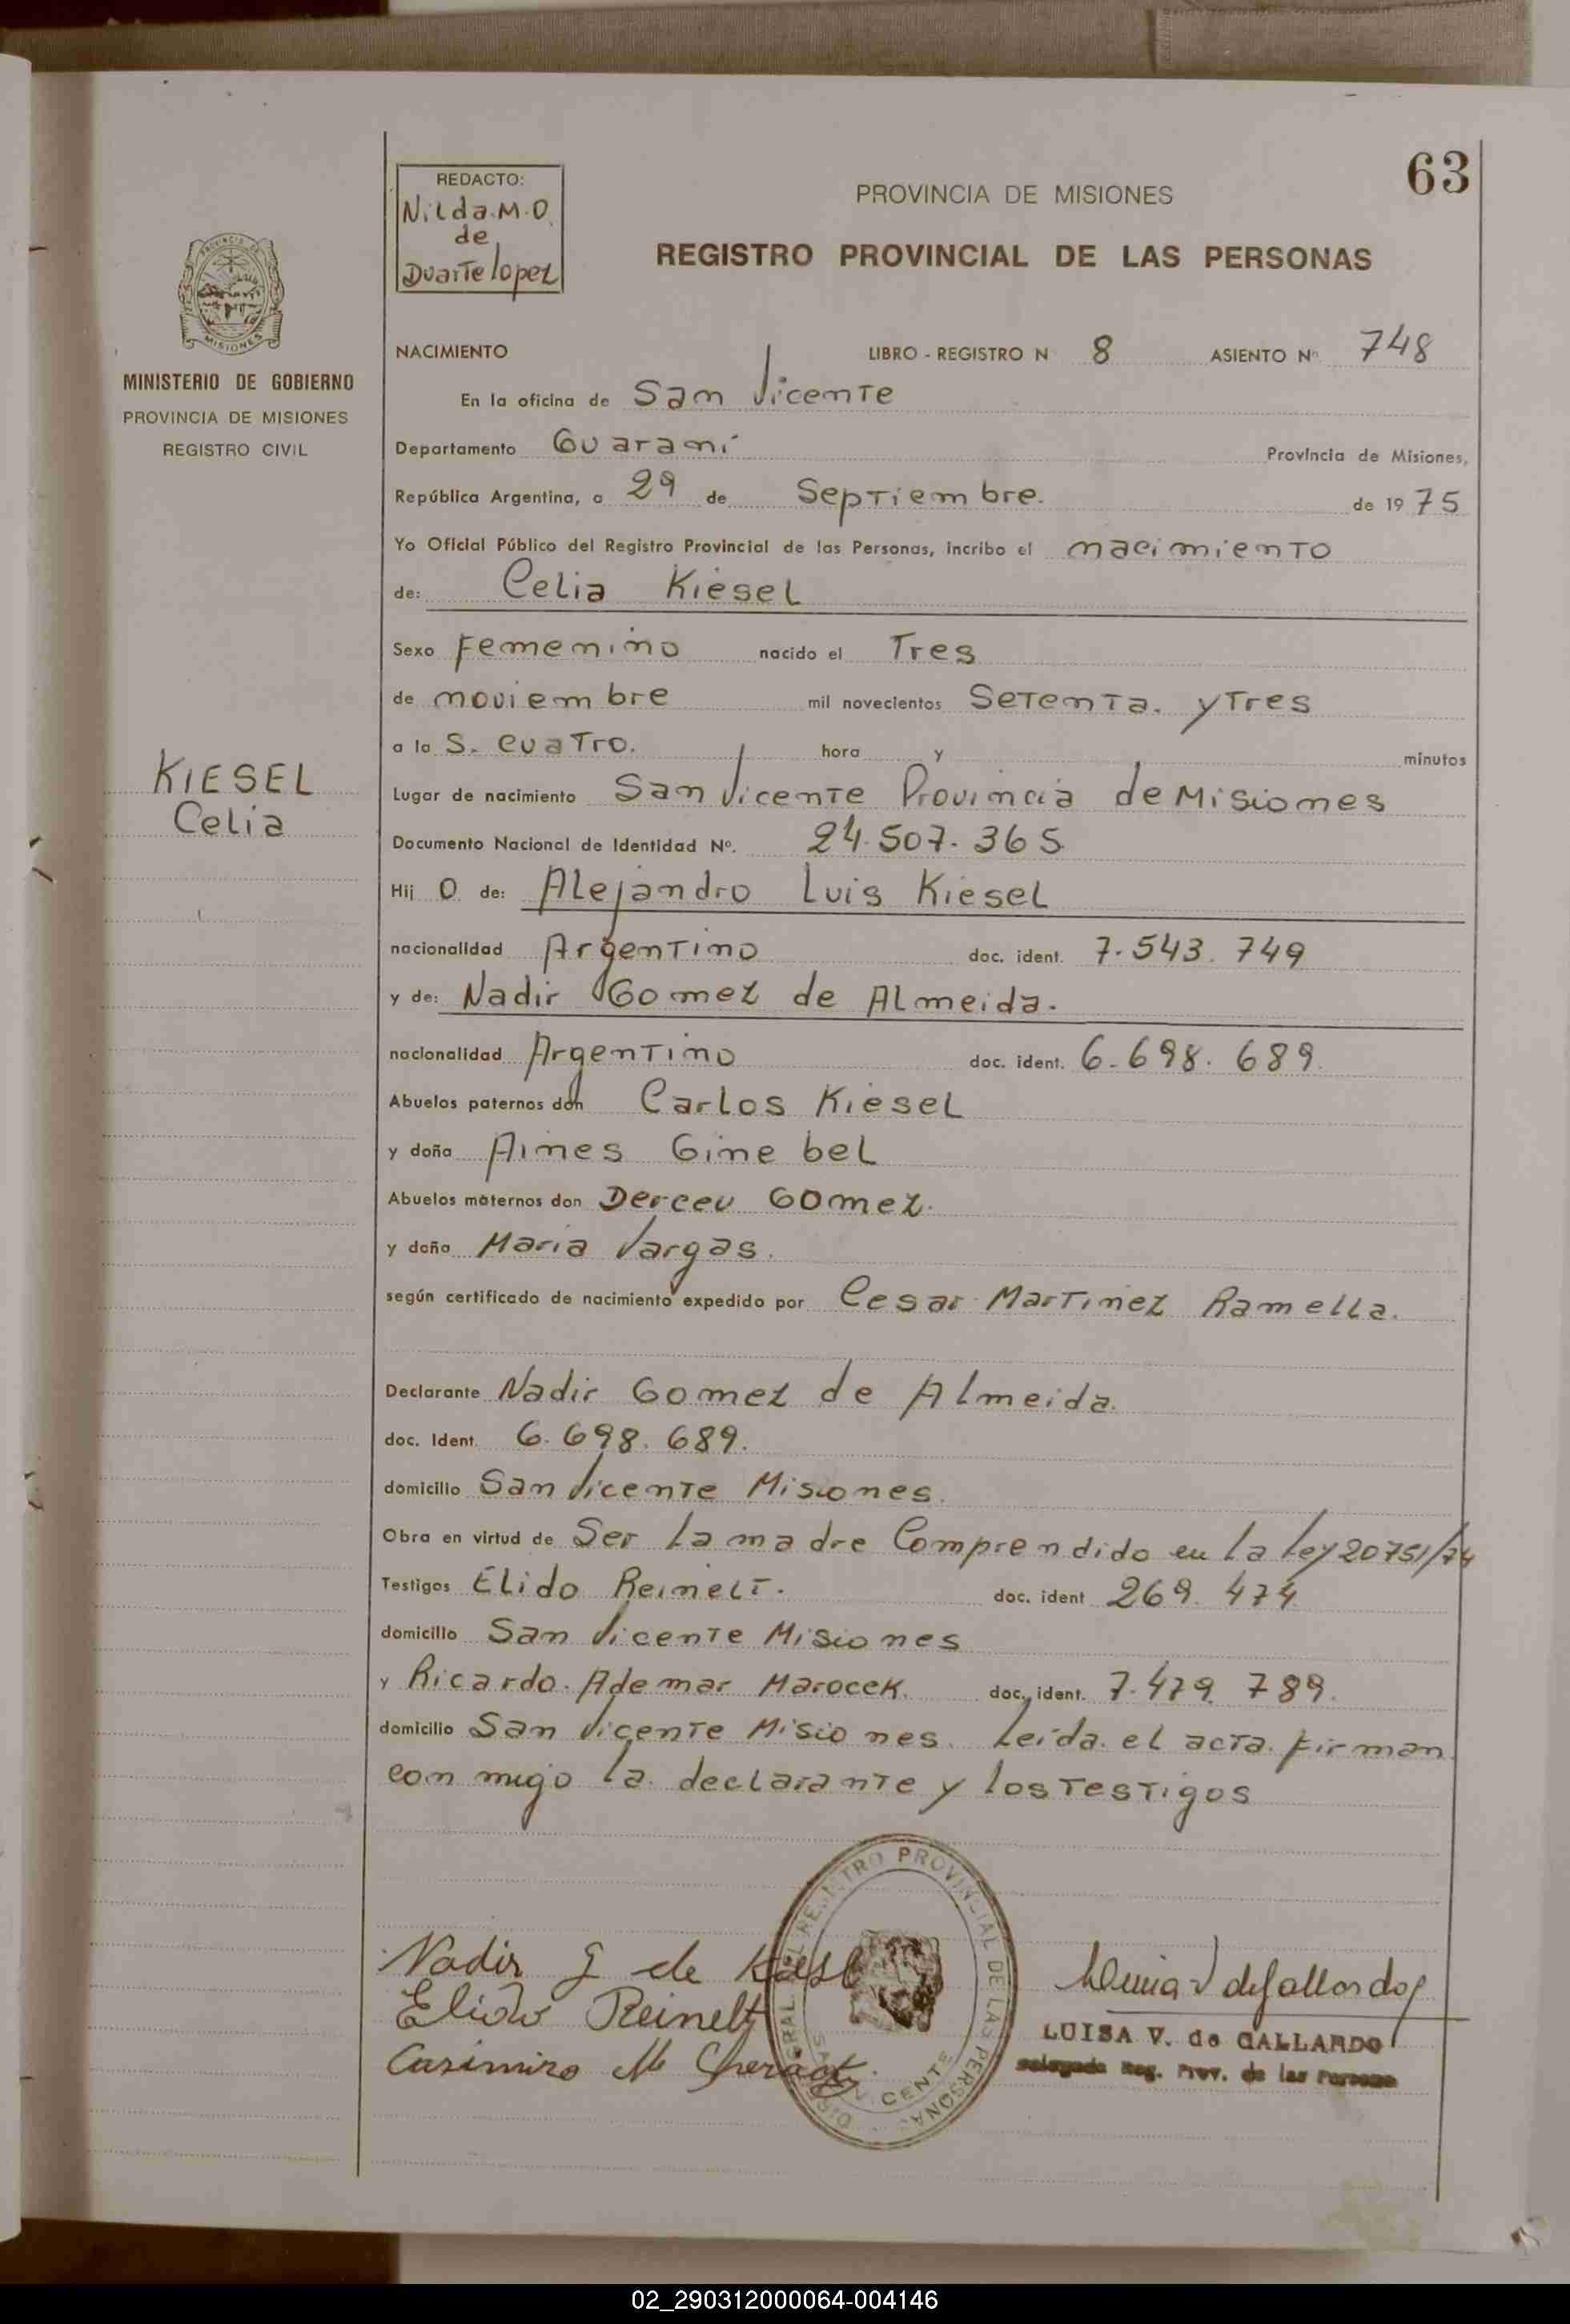 63
REDACTO:
Nilda.M.O.
de
Duarte lopez
PROVINCIA DE MISIONES
REGISTRO PROVINCIAL DE LAS PERSONAS
PROVINCIA DE
MISIONES
MINISTERIO DE GOBIERNO
PROVINCIA DE MISIONES
REGISTRO CIVIL
NACIMIENTO LIBRO - REGISTRO N 8 ASIENTO Nº 748
En la oficina de San Vicente
Departamento Guaraní Provincia de Misiones,
República Argentina, a 29 de Septiembre. de 1975
Yo Oficial Público del Registro Provincial de las Personas, incribo el nacimiento
de: Celia Kiesel
Sexo Femenino nacido el Tres
de noviembre mil novecientos Setenta. y Tres
a la S. cuatro. hora y minutos
KIESEL
Celia
Lugar de nacimiento San Vicente Provincia de Misiones
Documento Nacional de Identidad Nº. 24.507.365
Hij O de: Alejandro Luis Kiesel
nacionalidad Argentino doc. ident. 7.543.749
y de: Nadir Gomez de Almeida.
nacionalidad Argentino doc. ident. 6.698.689.
Abuelos paternos don Carlos Kiesel
y doña Aines Gime bel
Abuelos maternos don Derceu Gomez.
y doña Maria Vargas.
según certificado de nacimiento expedido por Cesar Martinez Ramella.
Declarante Nadir Gomez de Almeida.
doc. Ident. 6.698.689.
domicilio San Vicente Misiones.
Obra en virtud de Ser La madre Comprendido en la ley 20751/74
Testigos Elido Reinelt. doc. ident 269.474
domicilio San Vicente Misiones
y Ricardo. Ademar Marocek. doc. ident. 7.479.789.
domicilio San Vicente Misiones. Leída. el acta. firman
con migo la. declarante y los Testigos
Nadir G de Kiesel
Elido Reinelt
Casimiro M
REGISTRO PROVINCIAL DE LAS PERSONAS
SAN VICENTE
Luisa V de Gallardo
LUISA V. de GALLARDO
Delegada Reg. Prov. de las Personas
02_290312000064-004146